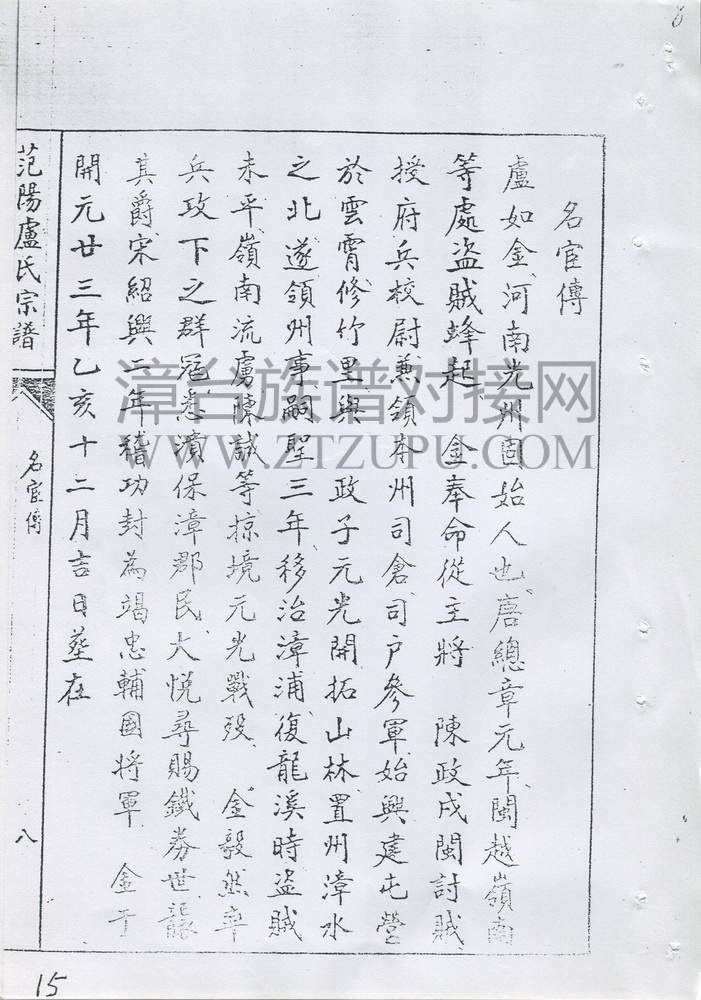 8
名宦傳
盧如金河南光州固始人也唐總章元年閩越嶺南
等處盜賊蜂起 金奉命從主將 陳政戍閩討賊
授府兵校尉兼領本州司倉司戶參軍始興建屯營
於雲霄修竹里與 政子元光開拓山林置州漳水
之北遂領州事嗣聖三年移治漳浦復龍溪時盜賊
未平嶺南流虜陳誠等掠境元光戰歿 金毅然率
兵攻下之群冦悉潰保漳郡民大悅尋賜鐵券世襲
其爵宋紹興二年稽功封為竭忠輔國將軍 金于
開元廿三年乙亥十二月吉日塟在
范陽盧氏宗譜
名宦傳
八
15
漳台族谱对接网
WWW.ZTZUPU.COM